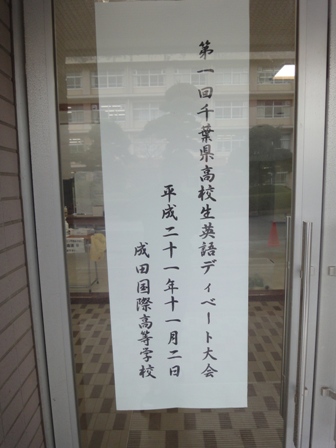 第一回千葉県高校生英語ディベート大会
平成二十一年十一月二日
成田国際高等学校